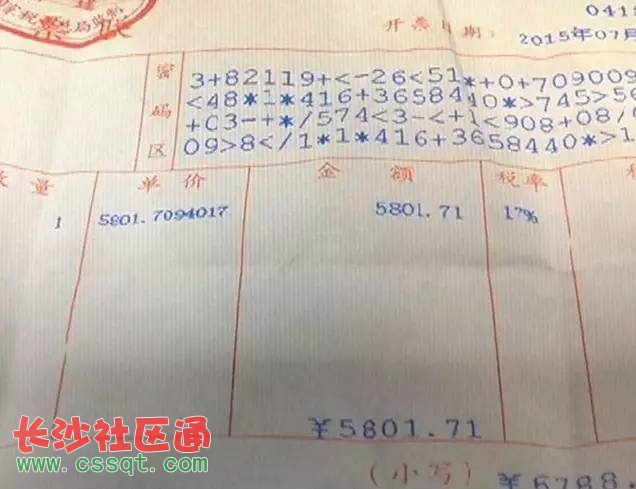 0415
开票日期: 2015年07月
密码区
3+82119+<-26<51*+0+709009
<48*1*416+3658440*>745>56
+03-+*/574<3-<+1<908+08/
09>8</1*1*416+3658440*>1
数量 单价 金额 税率
1 5801.7094017 5801.71 17%
¥5801.71
(小写) ¥6788.
长沙社区通
www.cssqt.com